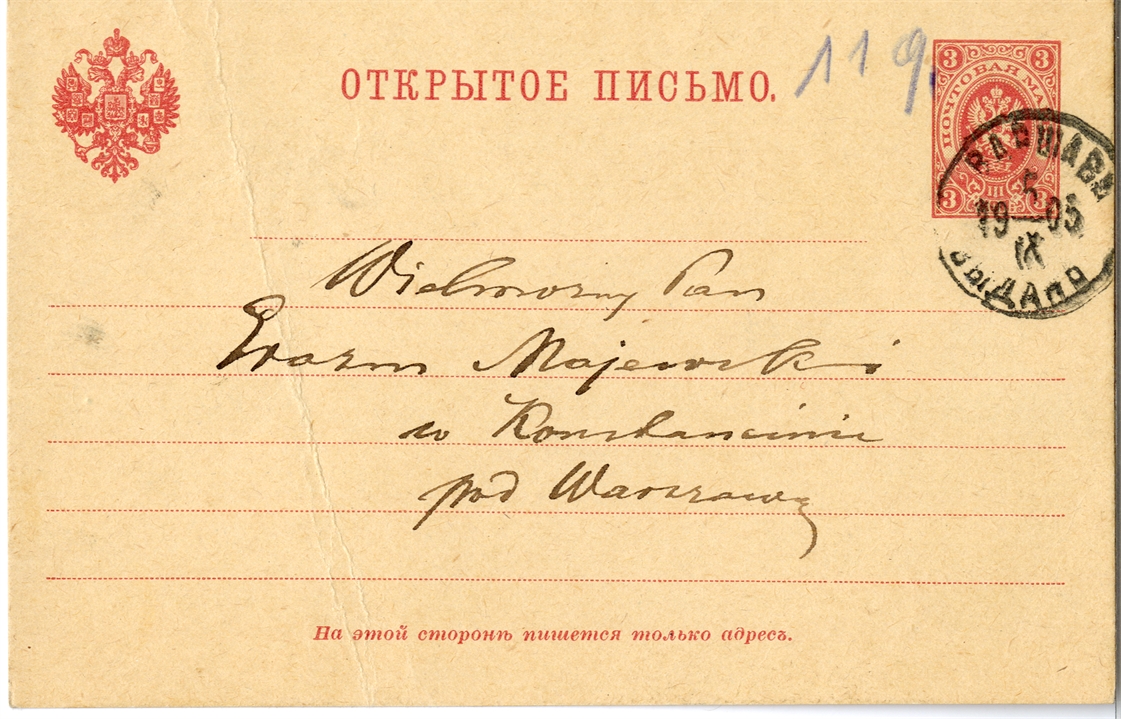 ОТКРЫТОЕ ПИСЬМО.
119.
3 3
ПОЧТОВАЯ МА
3 III 3
ВАРШАВА
5
19—05
IX
ВЫДАНО
Wielmożny Pan
Erazm Majewski
w Konstancinie
pod Warszawą
На этой сторонѣ пишется только адресъ.